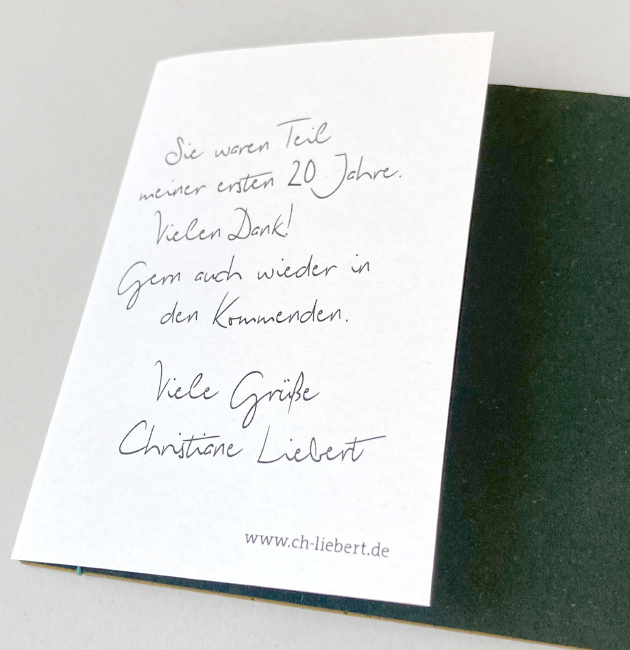 Sie waren Teil
meiner ersten 20 Jahre.
Vielen Dank!
Gern auch wieder in
den Kommenden.
Viele Grüße
Christiane Liebert
www.ch-liebert.de